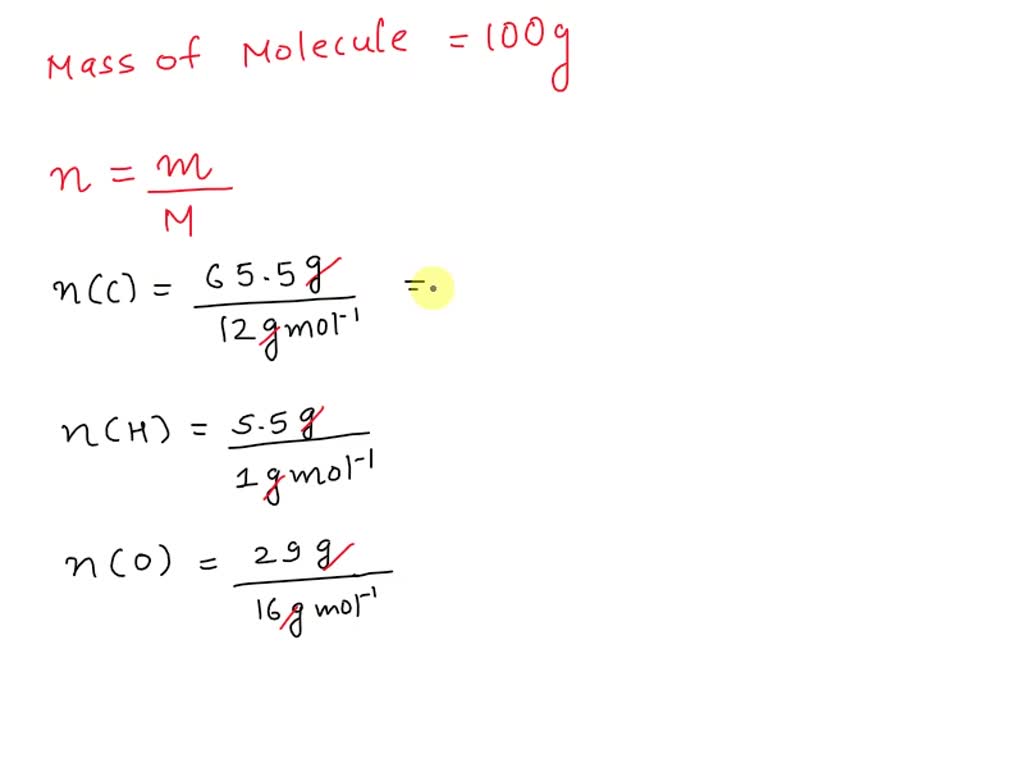 Mass of Molecule = 100g
n = m/M
n(C) = 65.5g/12gmol⁻¹ =
n(H) = 5.5g/1gmol⁻¹
n(O) = 29g/16gmol⁻¹